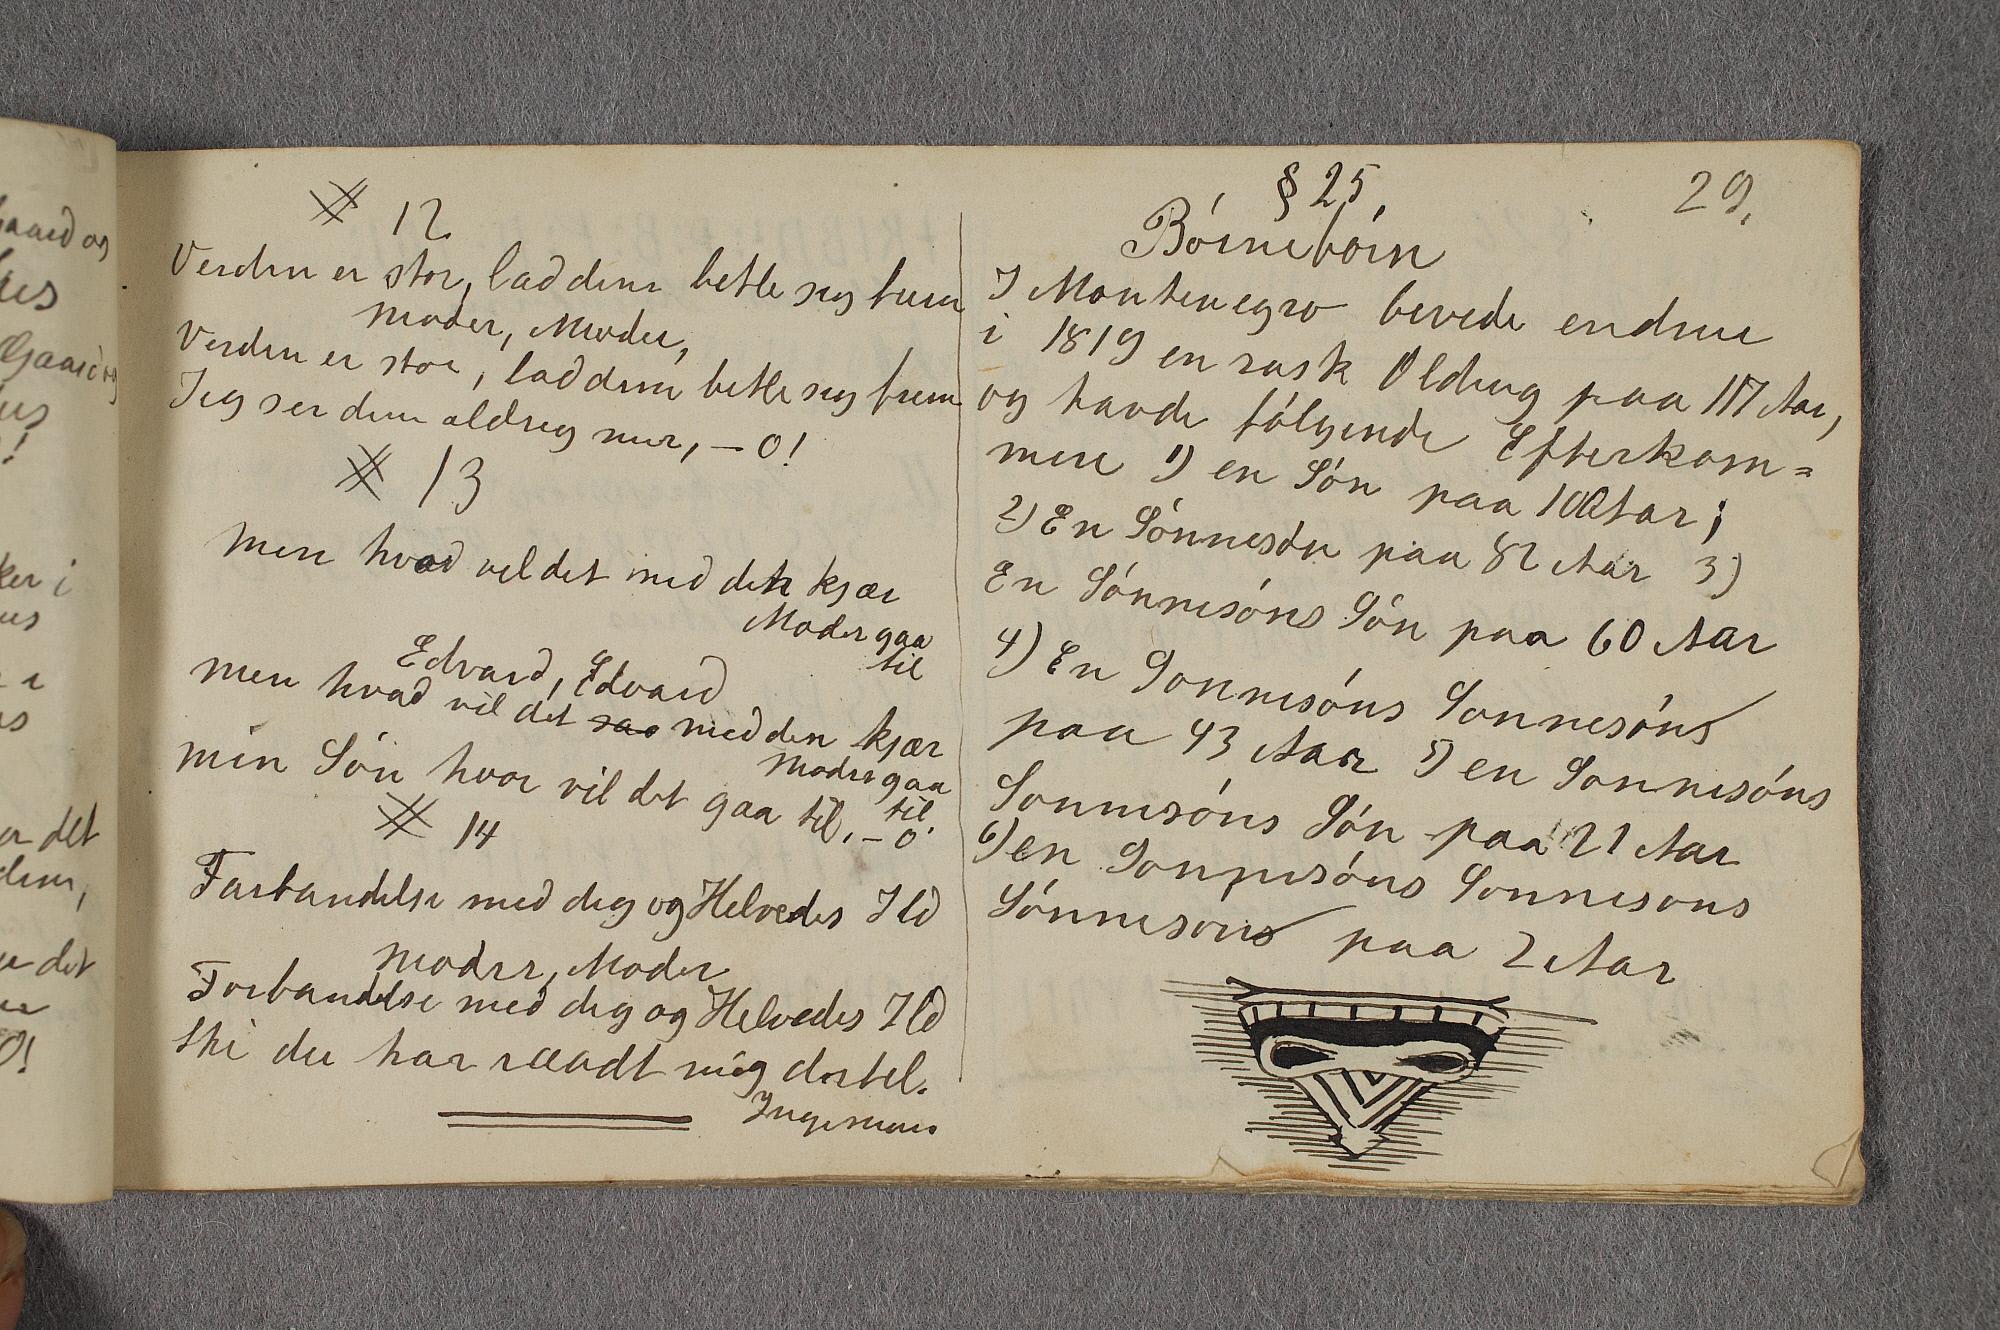 29.
12.
Verden er stor, lad dem betle sig frem
Moder, Moder,
Verden er stor, lad dem betle sig frem
Jeg ser dem aldrig mer, – O!
13
Men hvad vil det med den kjær
Moder gaa
til
Edvard, Edvard
Men hvad vil det saa med den kjær
Moder gaa
til
min Søn hvor vil det gaa til, – O!
14
Forbandelse med dig og Helvedes Ild
Moder, Moder
Forbandelse med dig og Helvedes Ild
thi du har raadt mig dertil.
Ingemann
§ 25.
Børnebørn
I Montenegro levede endnu
i 1819 en rask Olding paa 117 Aar,
og havde følgende Efterkom=
mere 1) en Søn paa 100 Aar;
2) En Sønnesøn paa 82 Aar 3)
En Sønnesøns Søn paa 60 Aar
4) En Sonnesøns Sonnesøn
paa 43 Aar 5) en Sonnesøns
Sonnesøns Søn paa 21 Aar
6) en Sonnesøns Sonnesons
Sønneson paa 2 Aar
Gaard og